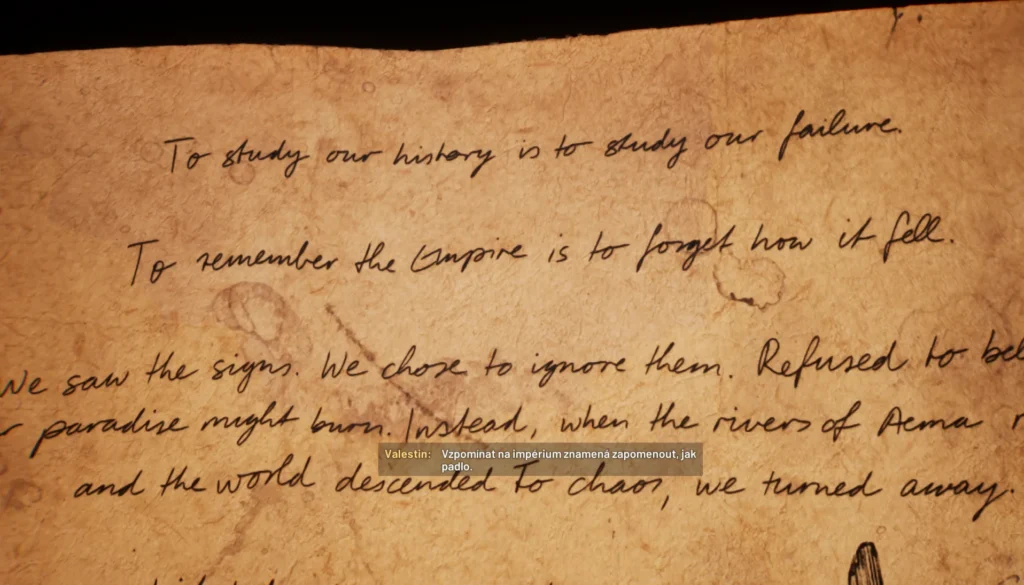 To study our history is to study our failure.
To remember the Empire is to forget how it fell.
We saw the signs. We chose to ignore them. Refused to
paradise might burn. Instead, when the rivers of Aema
Valestin: Vzpomínat na impérium znamená zapomenout, jak
padlo.
and the world descended To chaos, we turned away.